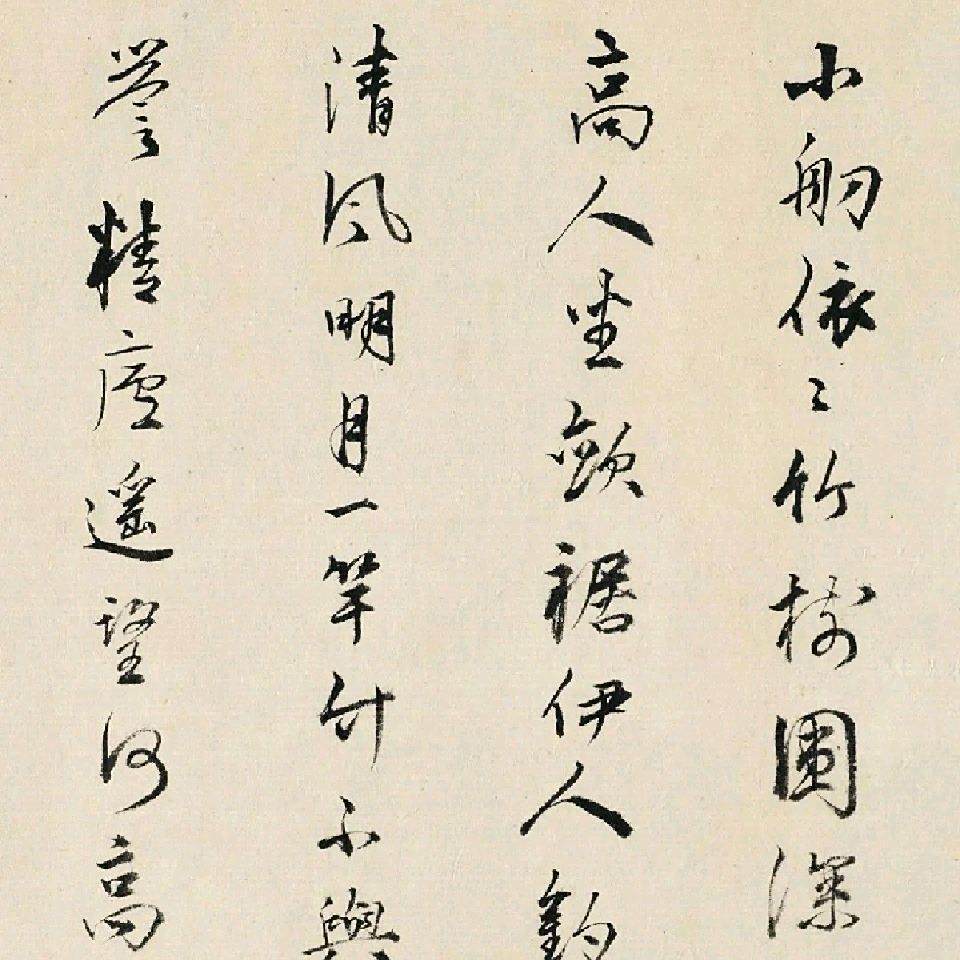 小舠依〻竹樹圍深
高人坐斂裾伊人
清風明月一竿竹不與
營精廬遥望何高